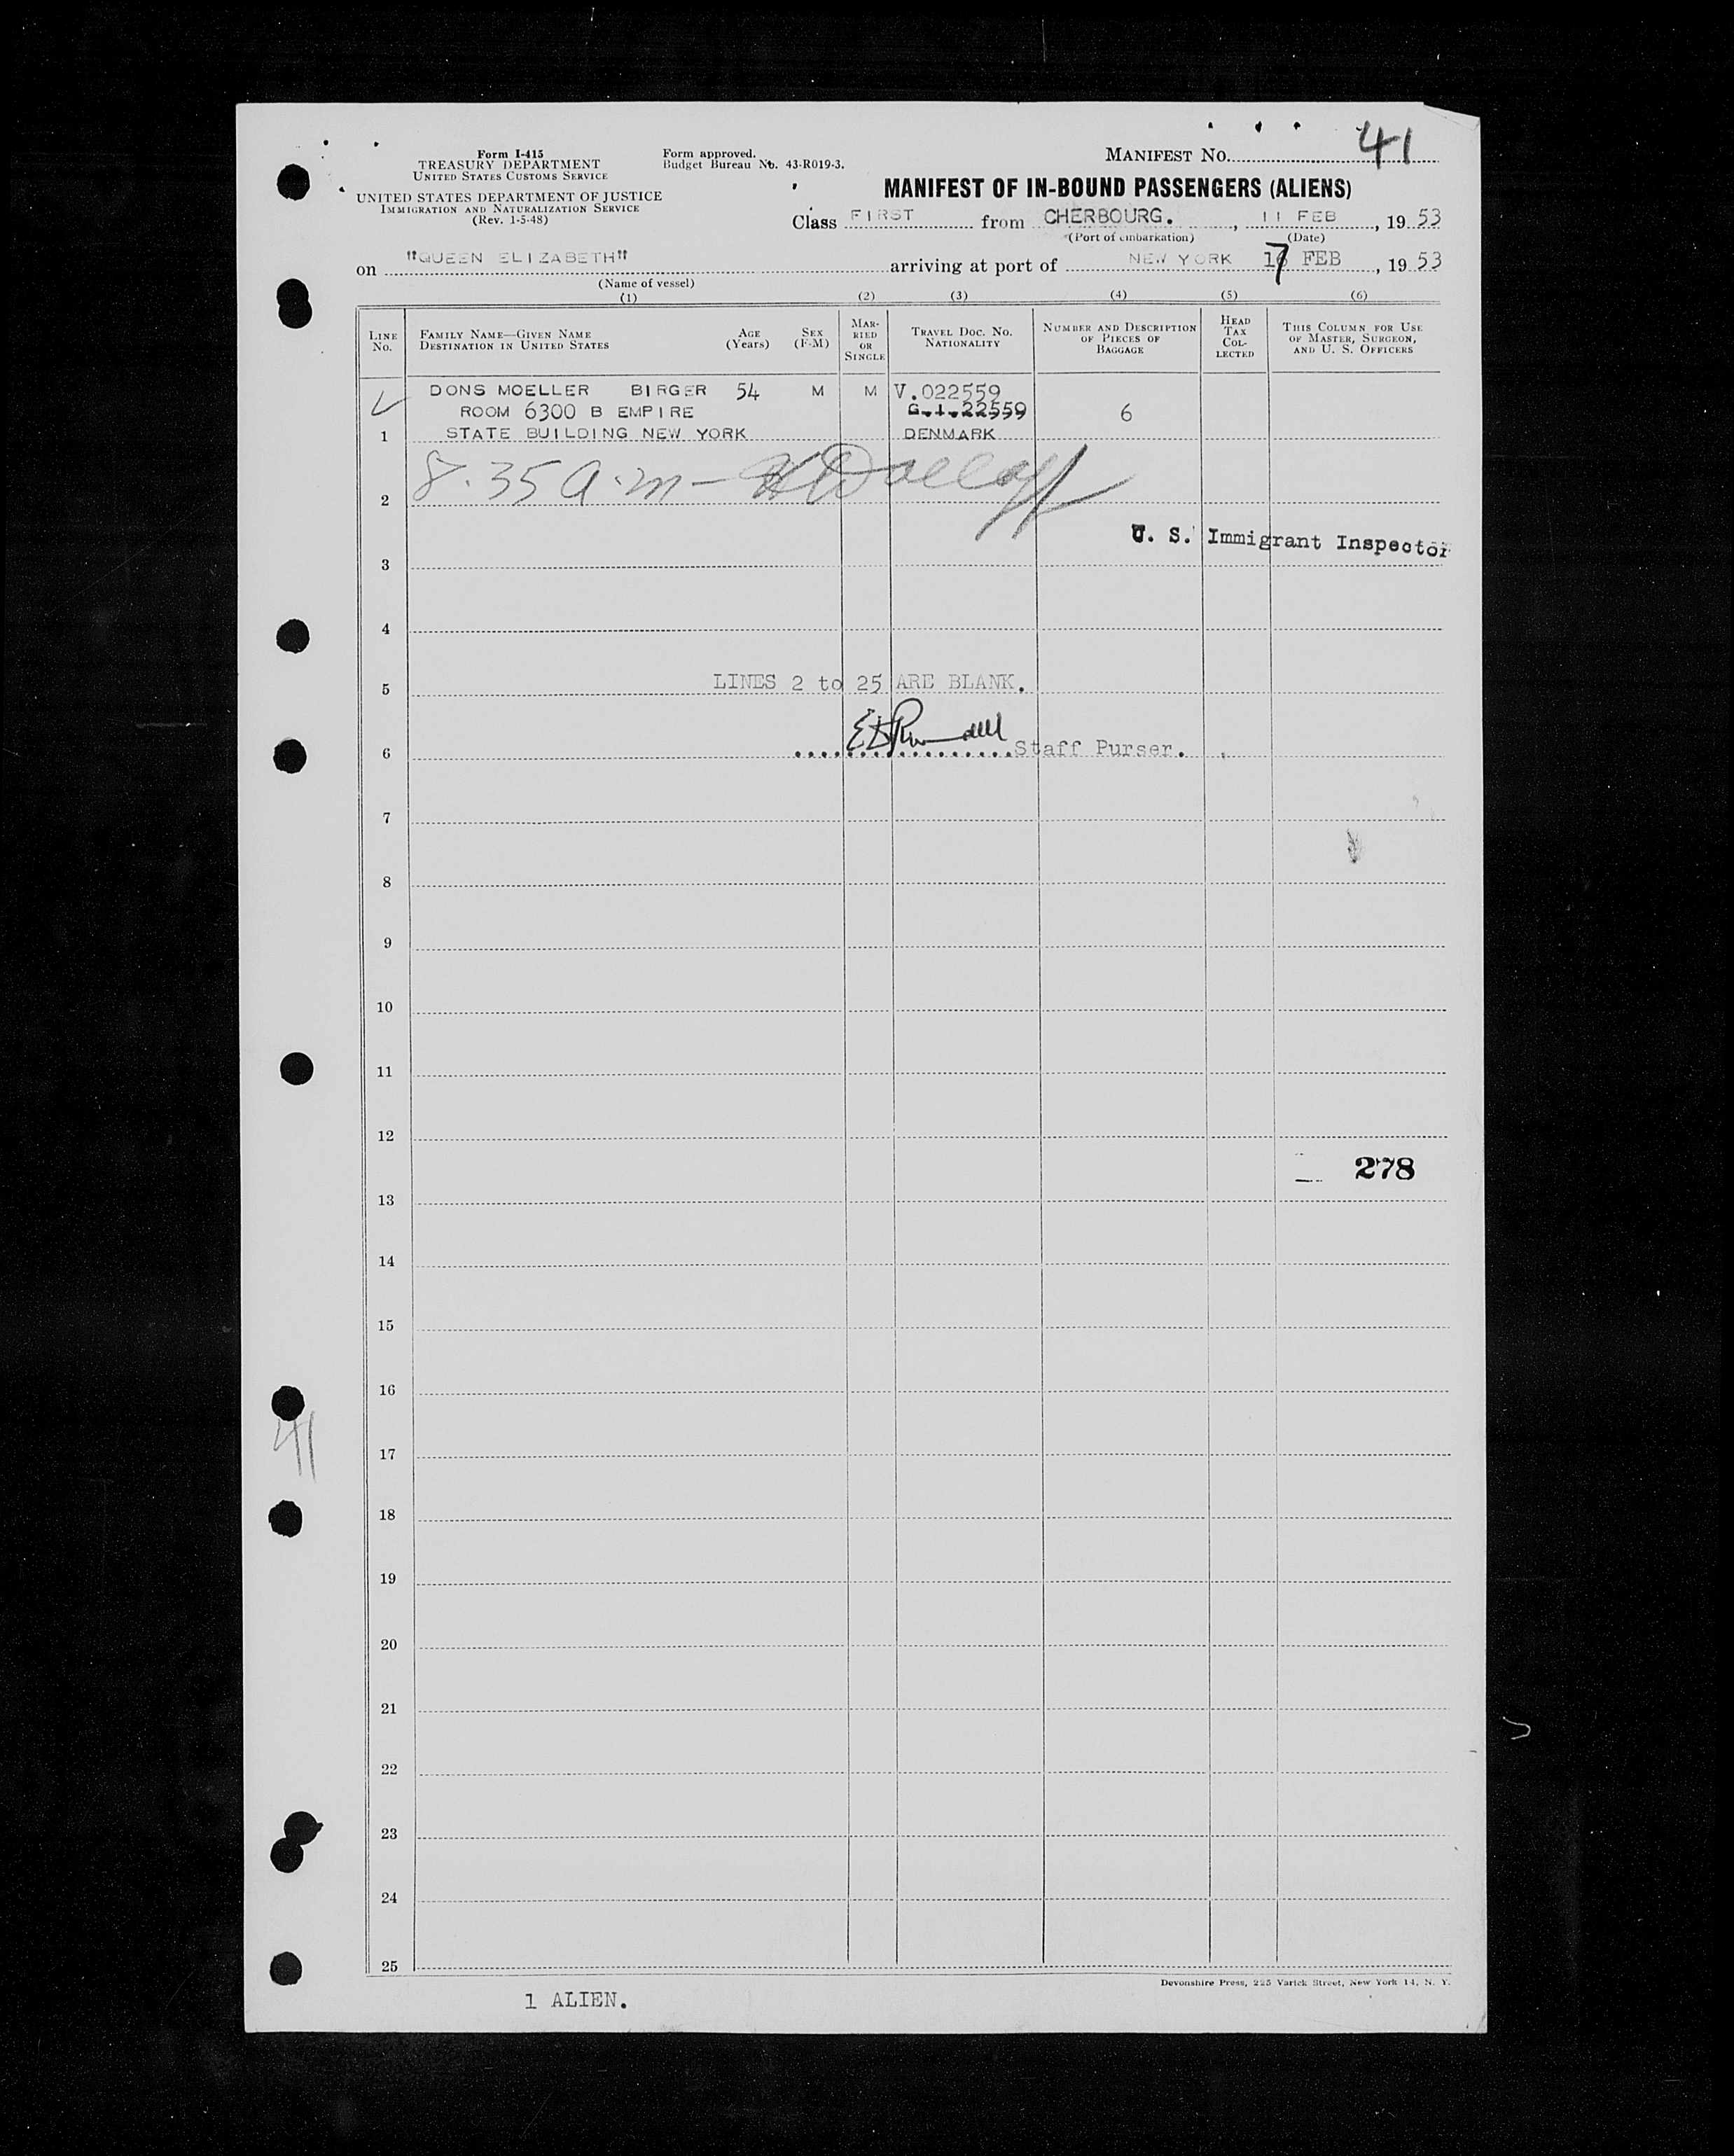 41
Form I-415
TREASURY DEPARTMENT
UNITED STATES CUSTOMS SERVICE
UNITED STATES DEPARTMENT OF JUSTICE
IMMIGRATION AND NATURALIZATION SERVICE
(Rev. 1-5-48)
Form approved.
Budget Bureau No. 43-R019-3.
MANIFEST NO.
MANIFEST OF IN-BOUND PASSENGERS (ALIENS)
Class FIRST from CHERBOURG. , 11 FEB , 19 53
(Port of embarkation) (Date)
on "QUEEN ELIZABETH" arriving at port of NEW YORK 17 FEB , 19 53
(Name of vessel)
(1) (2) (3) (4) (5) (6)
LINE No.
FAMILY NAME—GIVEN NAME
DESTINATION IN UNITED STATES
AGE (Years)
SEX (F-M)
MAR-RIED OR SINGLE
TRAVEL DOC. NO.
NATIONALITY
NUMBER AND DESCRIPTION OF PIECES OF BAGGAGE
HEAD TAX COL-LECTED
THIS COLUMN FOR USE OF MASTER, SURGEON, AND U. S. OFFICERS
DONS MOELLER BIRGER 54 M M V.022559
ROOM 6300 B EMPIRE G.I.22559 6
1 STATE BUILDING NEW YORK DENMARK
8.35 a.m-
2
U. S. Immigrant Inspector
3
4
5 LINES 2 to 25 ARE BLANK.
6 Staff Purser.
7
8
9
10
11
12
278
13
14
15
16
41
17
18
19
20
21
22
23
24
25
Devonshire Press, 225 Varick Street, New York 14, N. Y.
1 ALIEN.